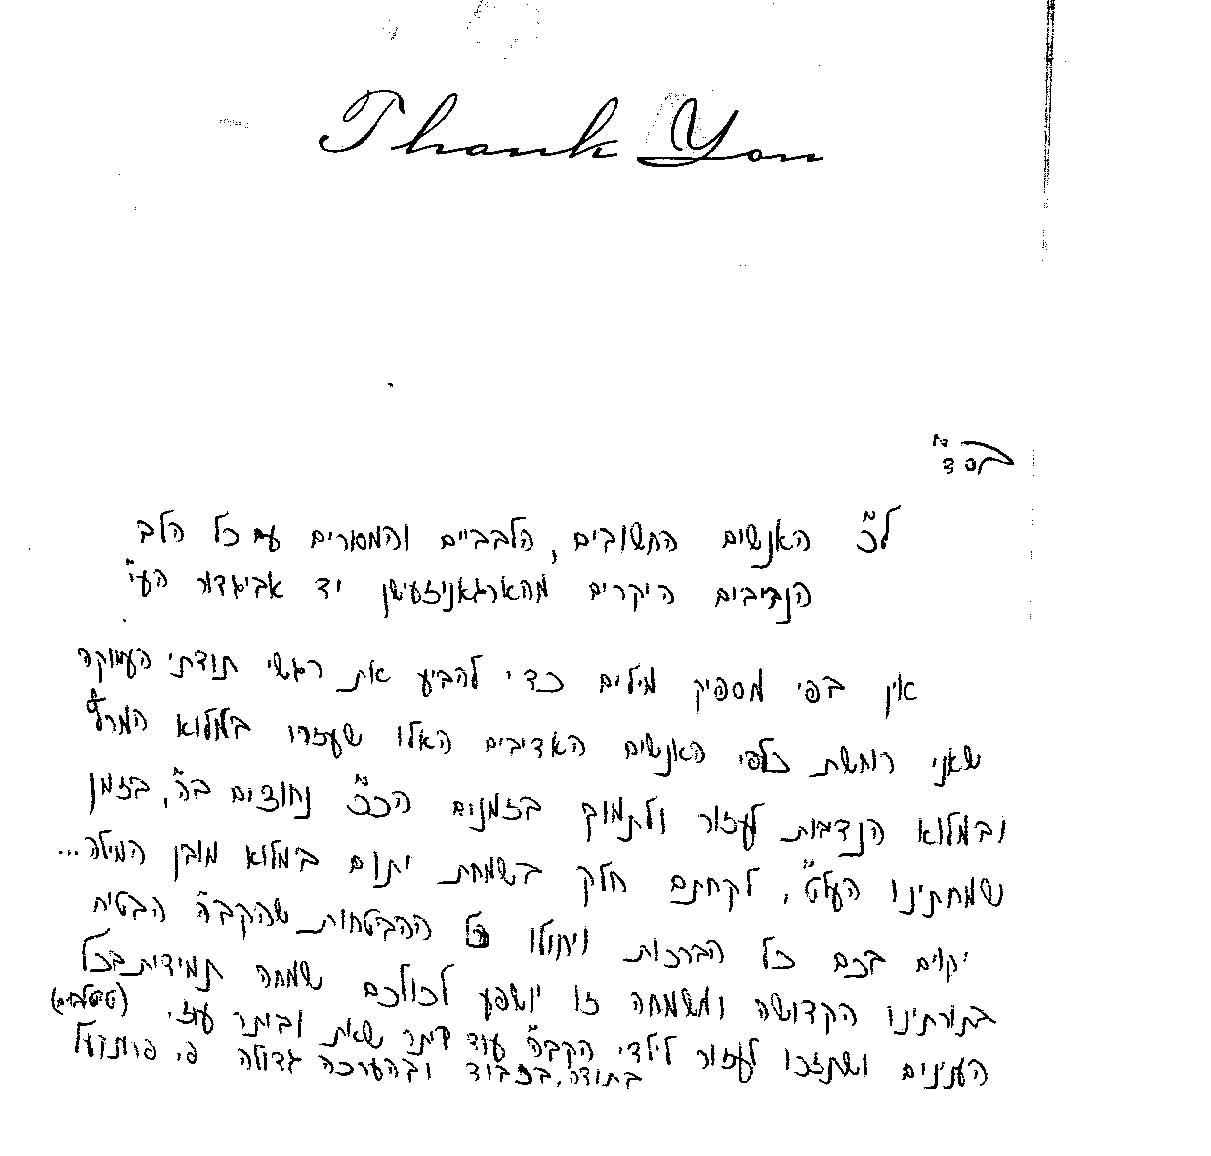 Thank You
בסד"
לכ" האנשים החשובים, הלבביים והמסורים עם כל הלב
הנדיבים היקרים מהארגאניזעישן יד אביגדור הע"י
אין בפי מספיק מילים כדי להביע את רגשי תודתי העמוקה
שאני רוחשת כלפי האנשים האדיבים האלו שעזרו במלוא המרץ
ובמלוא הנדבות לעזור ולתמוך בזמנים הכ"כ נחוצים ב"ה, בזמן
שמחתינו העל"ט, לקחתם חלק בשמחת יתום במלוא מובן המילה...
יקוים בכם כל הברכות ויחולו כל ההבטחות שהקב"ה הבטיח
בתורתינו הקדושה ומשמחה זו יושפע לכולכם שמחה תמידית בכל
הענינים ושתזכו לעזור לילדי הקב"ה עוד ביתר שאת וביתר עוז.
בתודה, בכבוד ובהערכה גדולה